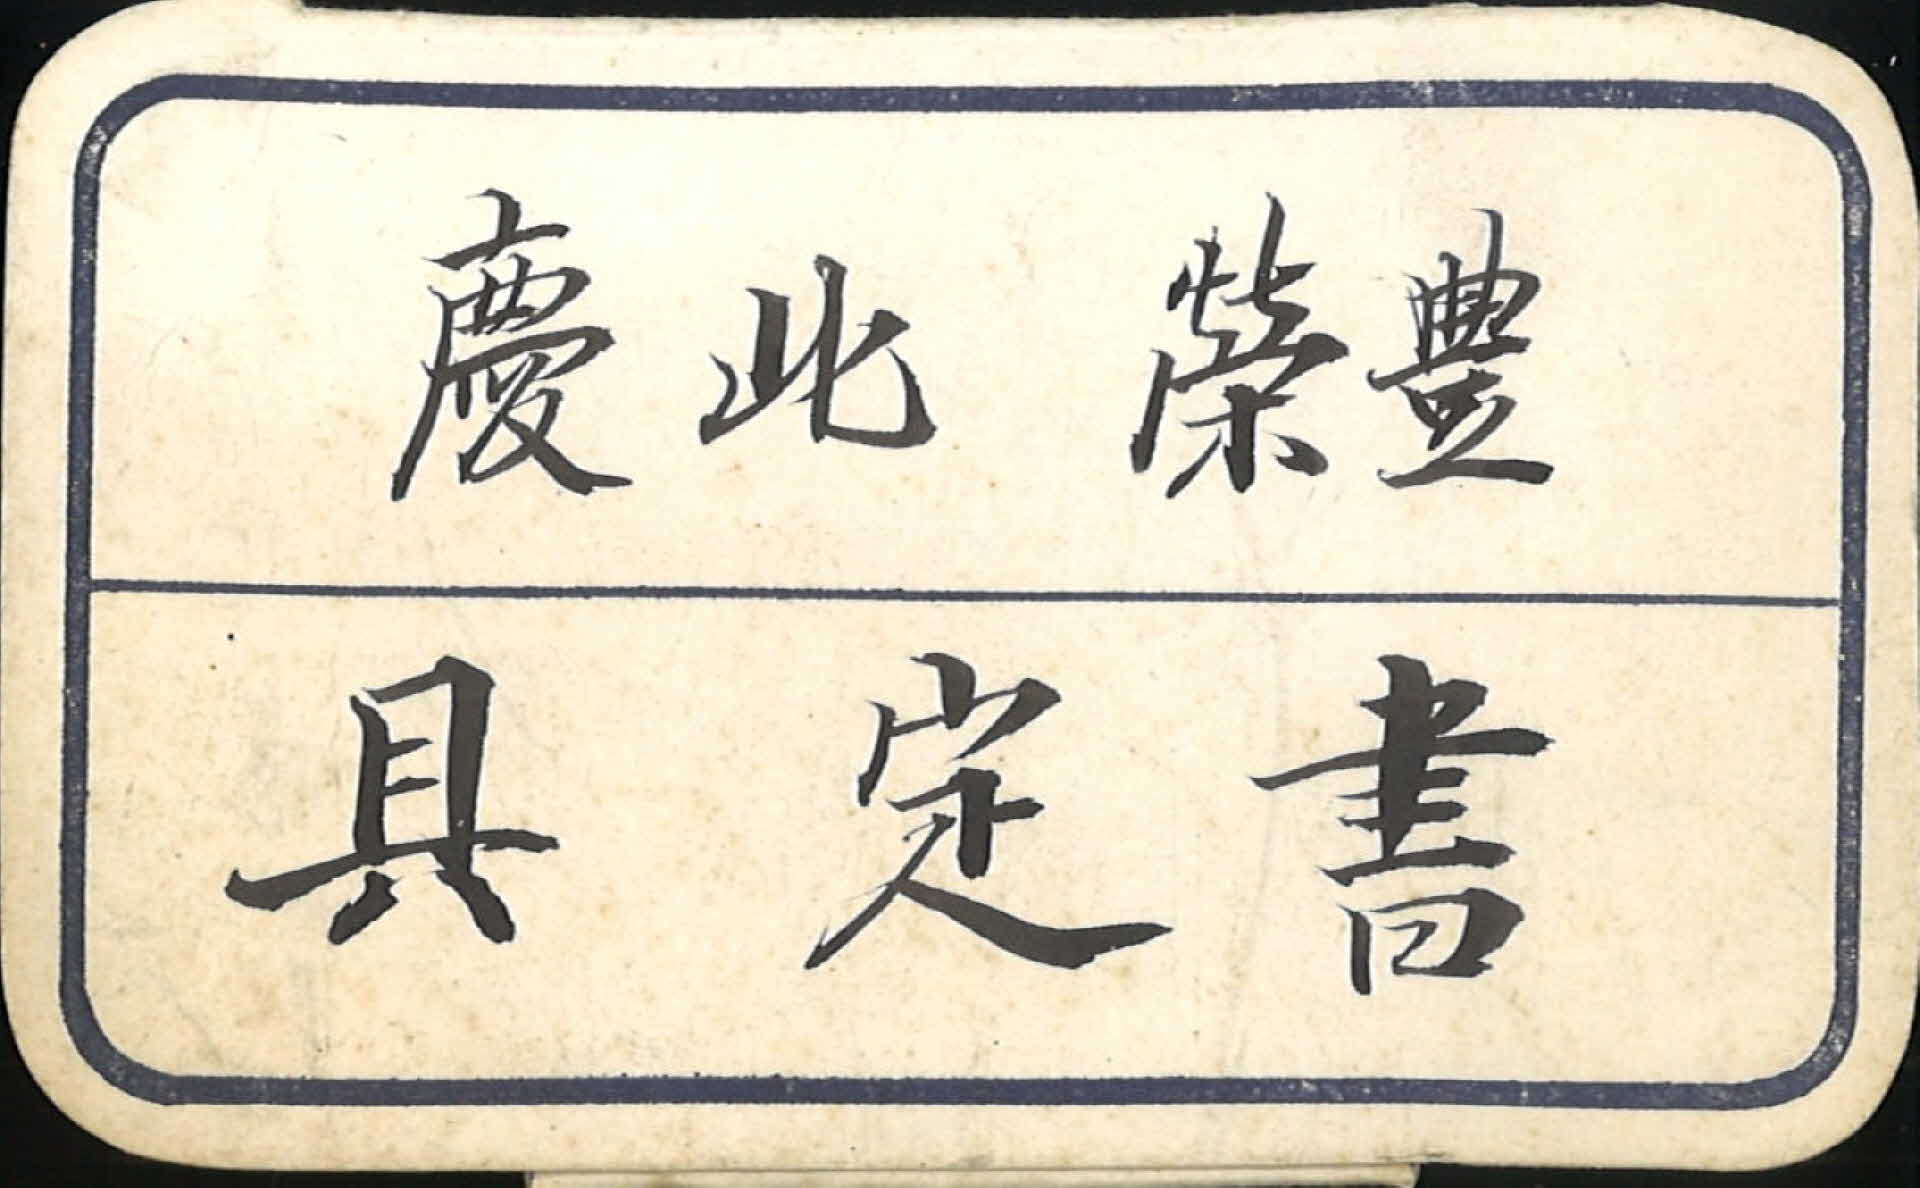 慶北 榮豊
具定書